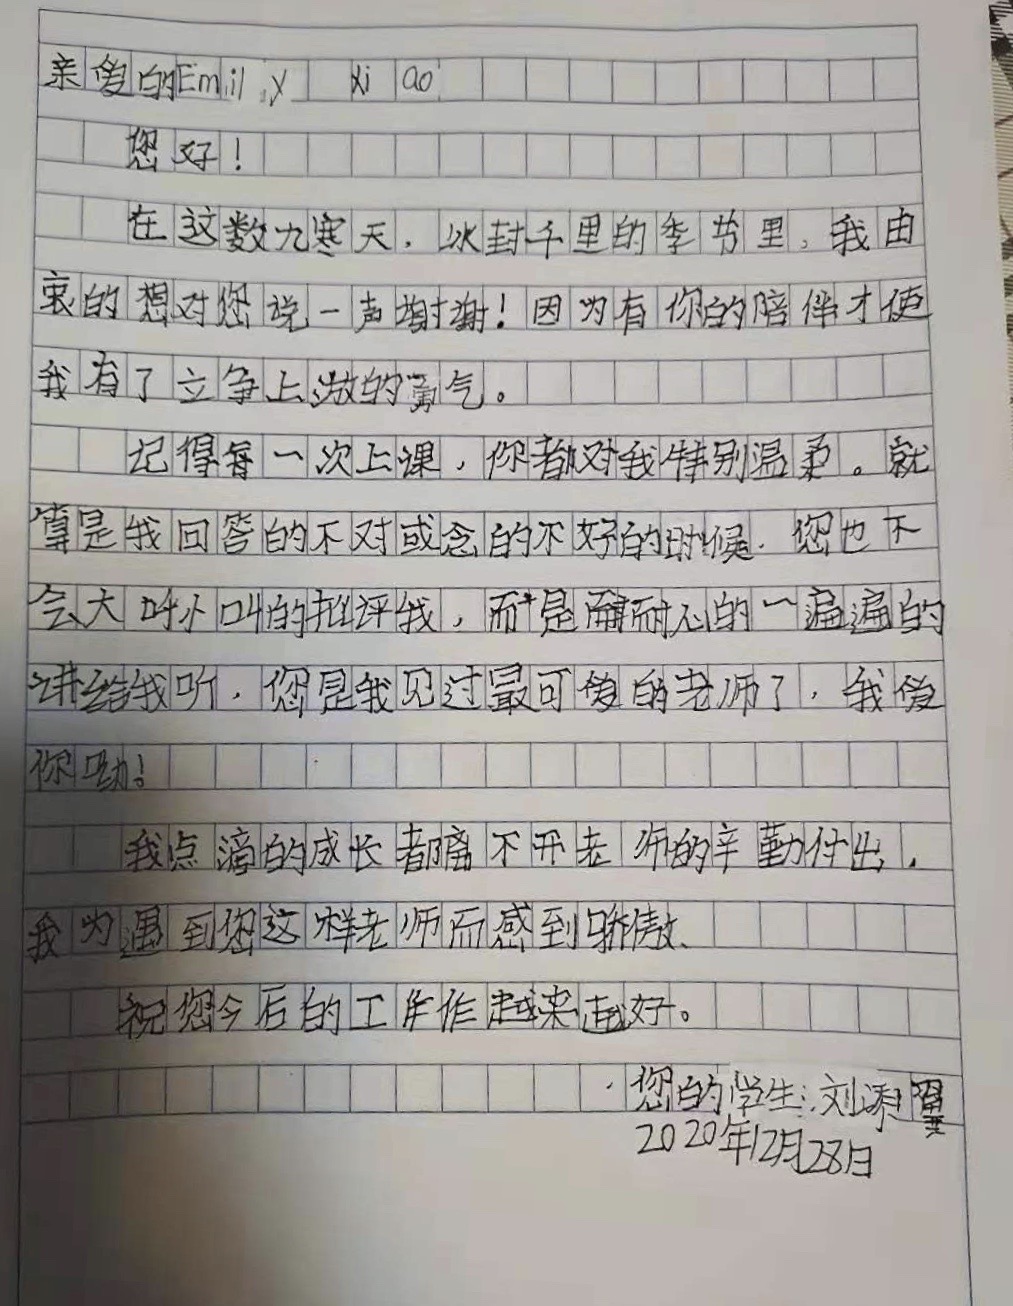 亲爱的Emily xiao
您好！
在这数九寒天，冰封千里的季节里，我由
衷的想对您说一声谢谢！因为有你的陪伴才使
我有了立争上游的勇气。
记得每一次上课，你都对我特别温柔。就
算是我回答的不对或念的不好的时候．您也不
会大呼小叫的批评我，而是耐心的一遍遍的
讲给我听，您是我见过最可爱的老师了，我爱
你呦！
我点滴的成长都离不开老师的辛勤付出，
我为遇到您这样老师而感到骄傲、
祝您今后的工作越来越好。
您的学生：刘添翼
2020年12月28日